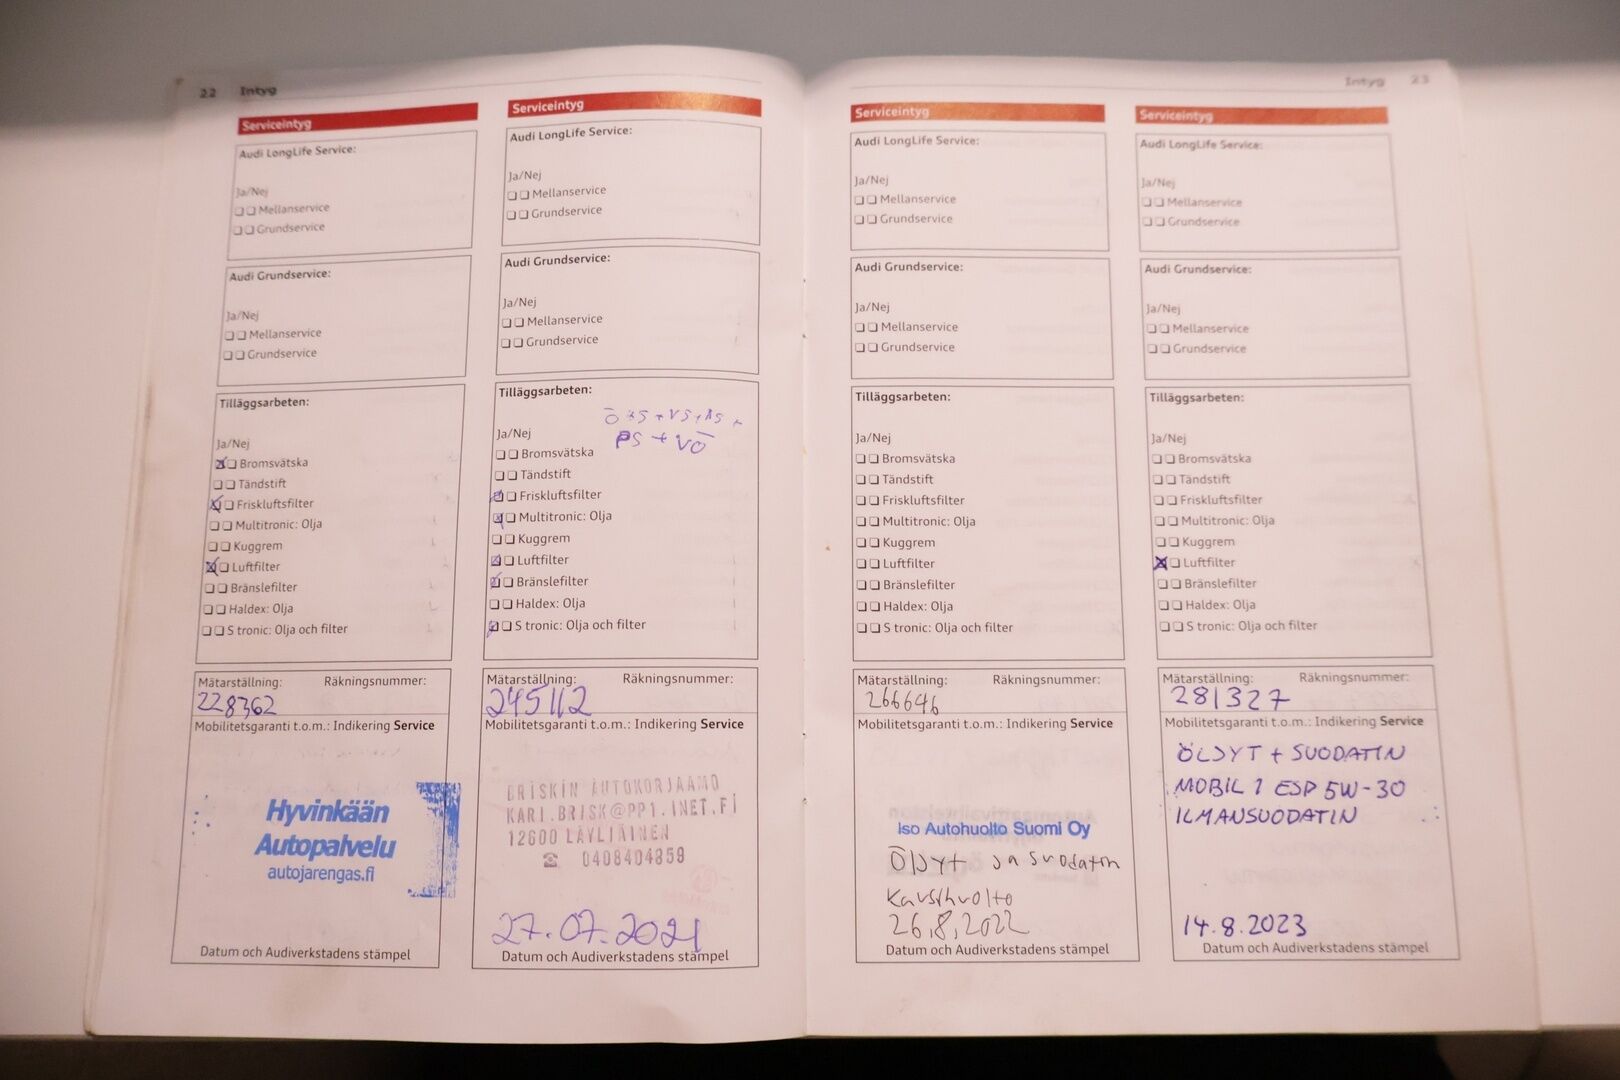 22 Intyg
Serviceintyg
Audi LongLife Service:
Ja/Nej
Mellanservice
Grundservice
Audi Grundservice:
Ja/Nej
Mellanservice
Grundservice
Tilläggsarbeten:
Ja/Nej
Bromsvätska
Tändstift
Friskluftsfilter
Multitronic: Olja
Kuggrem
Luftfilter
Bränslefilter
Haldex: Olja
S tronic: Olja och filter
Mätarställning: Räkningsnummer:
228362
Mobilitetsgaranti t.o.m.: Indikering Service
Hyvinkään
Autopalvelu
autojarengas.fi
Datum och Audiverkstadens stämpel
Serviceintyg
Audi LongLife Service:
Ja/Nej
Mellanservice
Grundservice
Audi Grundservice:
Ja/Nej
Mellanservice
Grundservice
Tilläggsarbeten:
PS + VÖ
Ja/Nej
Bromsvätska
Tändstift
Friskluftsfilter
Multitronic: Olja
Kuggrem
Luftfilter
Bränslefilter
Haldex: Olja
S tronic: Olja och filter
Mätarställning: Räkningsnummer:
245112
Mobilitetsgaranti t.o.m.: Indikering Service
BRISKIN AUTOKORJAAMO
KARI.BRISK@PP1.INET.FI
12600 LÄYLIÄINEN
☎ 0408404859
27.07.2021
Datum och Audiverkstadens stämpel
Intyg 23
Serviceintyg
Audi LongLife Service:
Ja/Nej
Mellanservice
Grundservice
Audi Grundservice:
Ja/Nej
Mellanservice
Grundservice
Tilläggsarbeten:
Ja/Nej
Bromsvätska
Tändstift
Friskluftsfilter
Multitronic: Olja
Kuggrem
Luftfilter
Bränslefilter
Haldex: Olja
S tronic: Olja och filter
Mätarställning: Räkningsnummer:
266646
Mobilitetsgaranti t.o.m.: Indikering Service
Iso Autohuolto Suomi Oy
Öljyt ja suodatin
Kausihuolto
26.8.2022
Datum och Audiverkstadens stämpel
Serviceintyg
Audi LongLife Service:
Ja/Nej
Mellanservice
Grundservice
Audi Grundservice:
Ja/Nej
Mellanservice
Grundservice
Tilläggsarbeten:
Ja/Nej
Bromsvätska
Tändstift
Friskluftsfilter
Multitronic: Olja
Kuggrem
Luftfilter
Bränslefilter
Haldex: Olja
S tronic: Olja och filter
Mätarställning: Räkningsnummer:
281327
Mobilitetsgaranti t.o.m.: Indikering Service
ÖLJYT + SUODATIN
MOBIL 1 ESP 5W-30
ILMANSUODATIN
14.8.2023
Datum och Audiverkstadens stämpel